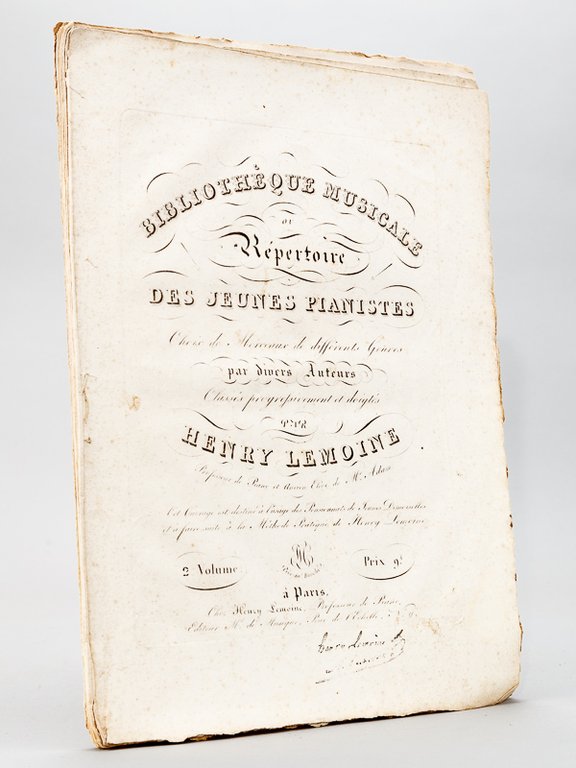 BIBLIOTHÈQUE MUSICALE
ou
Répertoire
DES JEUNES PIANISTES
Choix de Morceaux de différents Genres
par divers Auteurs
Classés progressivement et doigtés
PAR
HENRY LEMOINE
Professeur de Piano et Ancien Elève de Mr. Adam
Cet Ouvrage est destiné à l'usage des Pensionnats de Jeunes Demoiselles
et à faire suite à la Méthode Pratique de Henry Lemoine
2 Volume
Prix 9f
à Paris,
Chez Henry Lemoine, Professeur de Piano,
Editeur Md. de Musique, Rue de l'Echelle,
Henry Lemoine